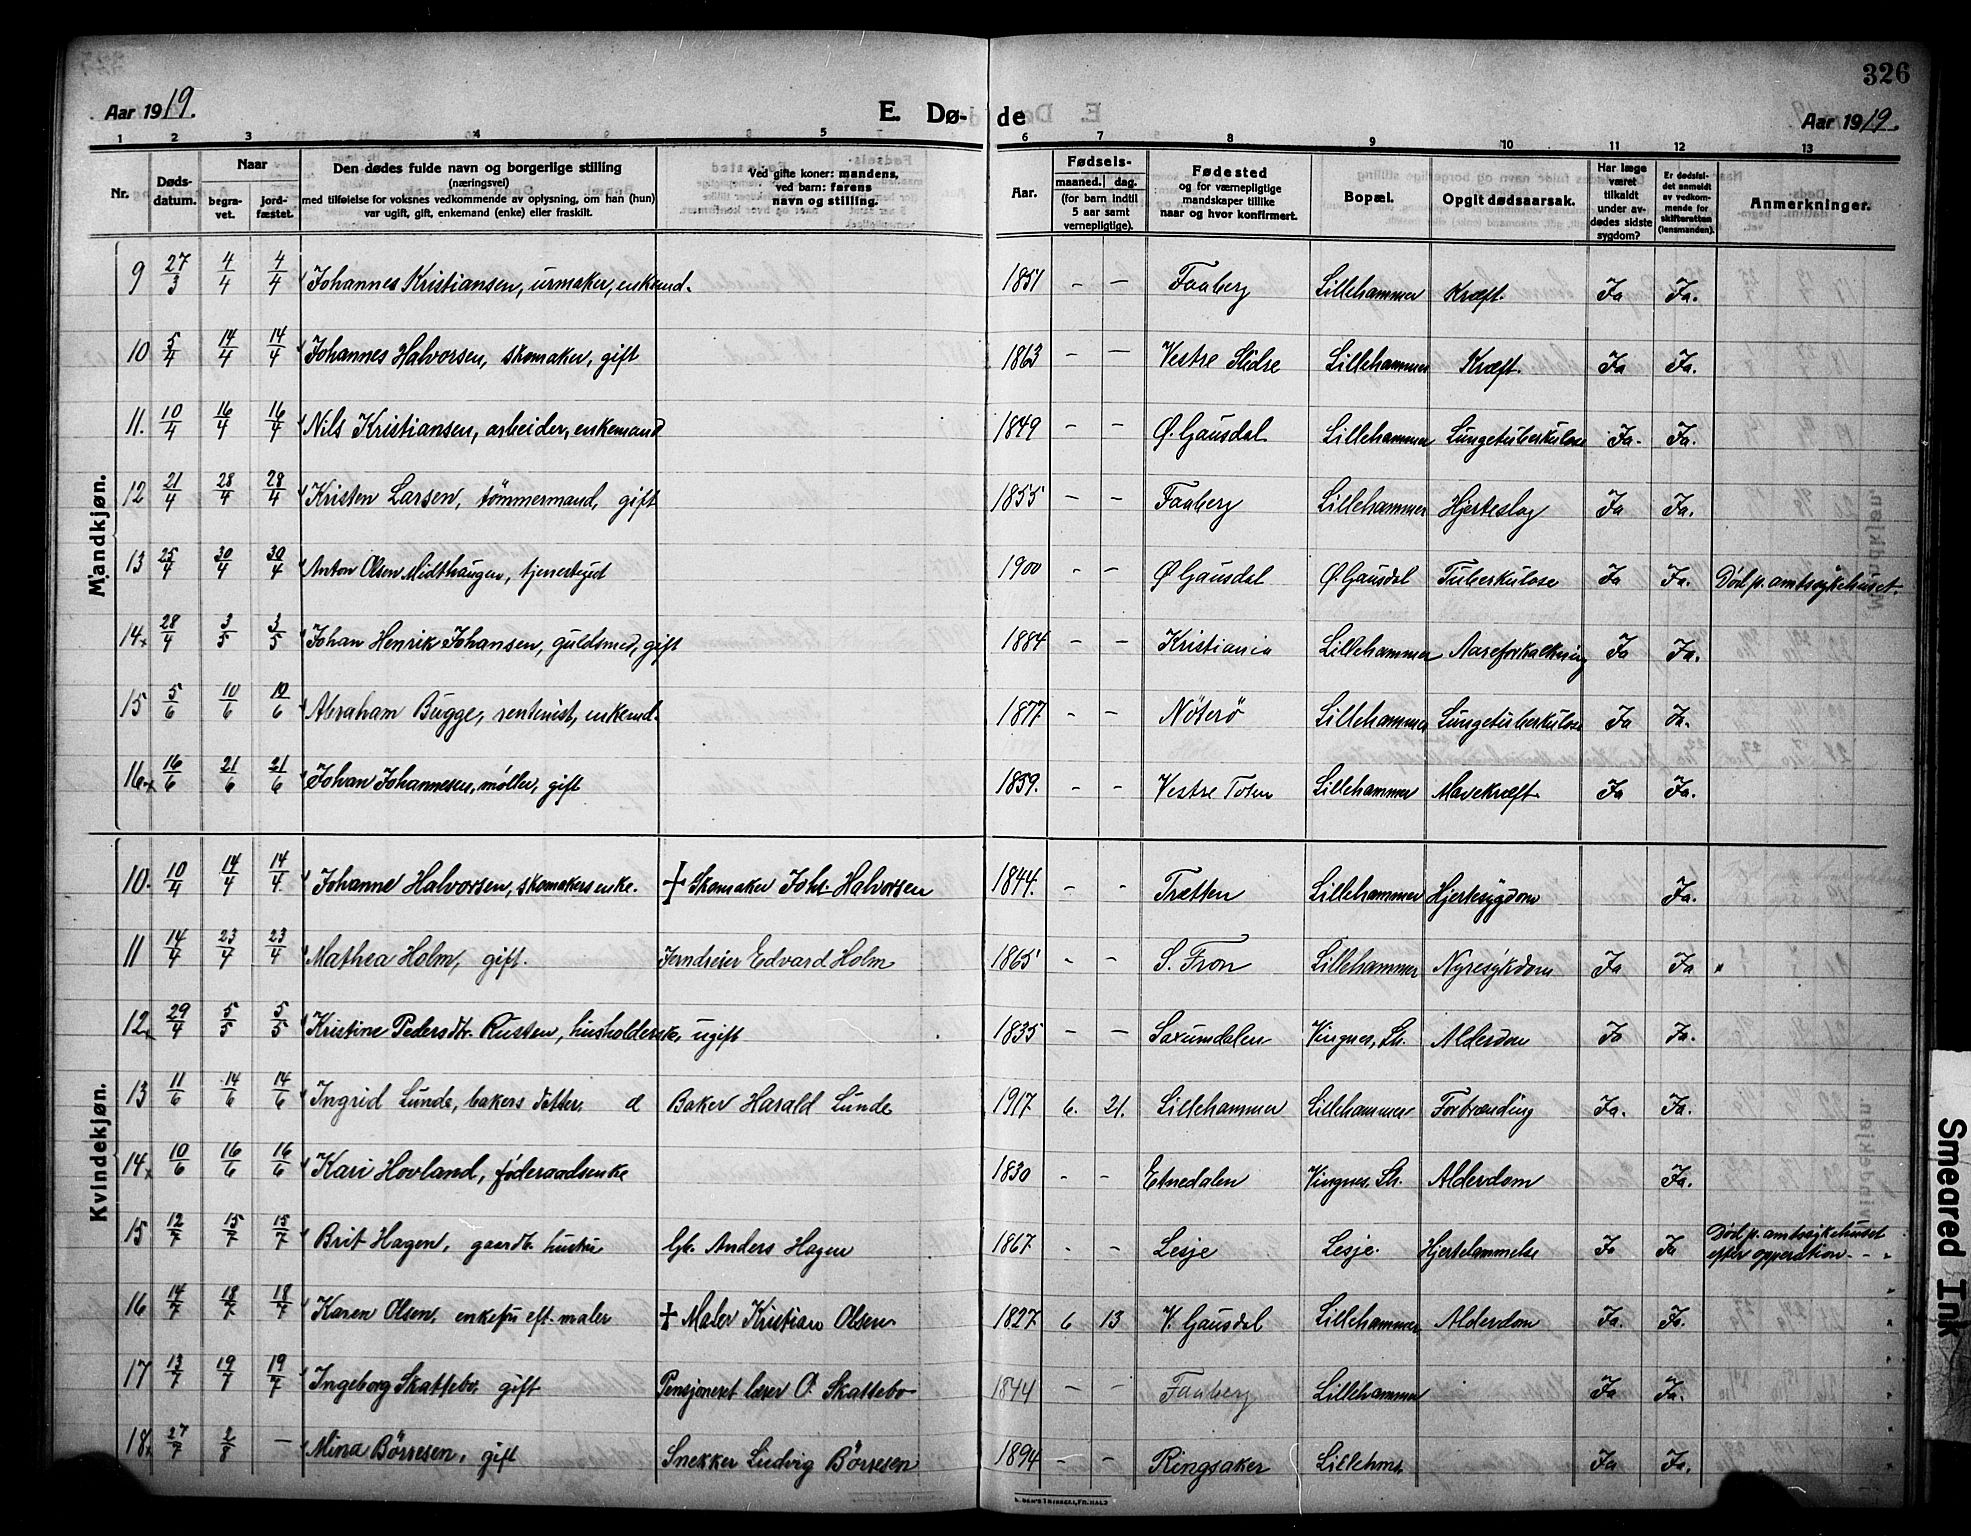 326
Aar 1919.
E. Dø-
de
Aar 1919.
1 2 3 4 5 6 7 8 9 10 11 12 13
Nr.
Døds-
datum.
Naar
begra-
vet.
jord-
fæstet.
Den dødes fulde navn og borgerlige stilling
(næringsvei)
med tilføielse for voksnes vedkommende av oplysning, om han (hun)
var ugift, gift, enkemand (enke) eller fraskilt.
Ved gifte koner: mandens,
ved barn: farens
navn og stilling.
Aar.
Fødsels-
maaned. dag.
(for barn indtil
5 aar samt
vernepligtige).
Fødested
og for værnepligtige
mandskaper tillike
naar og hvor konfirmert.
Bopæl.
Opgit dødsaarsak.
Har læge
været
tilkaldt
under av-
dødes sidste
sygdom?
Er dødsfal-
det anmeldt
av vedkom-
mende for
skifteretten
(lensmanden).
Anmerkninger.
Mandkjøn.
9 27/3 4/4 4/4 Johannes Kristiansen, urmaker, enkemd. 1851 - - Faaberg Lillehammer Kræft. Ja Ja.
10 5/4 14/4 14/4 Johannes Halvorsen, skomaker, gift 1863 - - Vestre Slidre Lillehammer Kræft. Ja Ja.
11. 10/4 16/4 16/4 Nils Kristiansen, arbeider, enkemand 1849 - - Ø. Gausdal Lillehammer Lungetuberkulose Ja. Ja.
12 21/4 28/4 28/4 Kristen Larsen, tömmermand, gift 1855 - - Faaberg Lillehammer Hjerteslag Ja Ja.
13 25/4 30/4 30/4 Anton Olsen Midthaugen, tjenestegut 1900 - - Ø Gausdal Ø. Gausdal Tuberkulose Ja Ja. Död p. amtssykehuset.
14x 28/4 3/5 3/5 Johan Henrik Johansen, guldsmed, gift 1884 - - Kristiania Lillehammer Aareforkalkning Ja Ja.
15 5/6 10/6 10/6 Abraham Bugge, rentenist, enkemd. 1877 - - Nöterö Lillehammer Lungetuberkulose Ja Ja.
16x 16/6 21/6 21/6 Johan Johannesen, møller, gift 1859. - - Vestre Toten Lillehammer Mavekræft. Ja Ja.
Kvindekjøn.
10. 10/4 14/4 14/4 Johanne Halvorsen, skomakersenke. † Skomaker Johs. Halvorsen 1844. - - Trætten Lillehammer Hjertesygdom Ja.
11 14/4 23/4 23/4 Mathea Holm, gift. Jerndreier Edvard Holm 1865 - - S. Fron Lillehammer Nyresykdom Ja Ja
12x 29/4 5/5 5/5 Kristine Pedersdtr. Rusten, husholderske, ugift 1835 - - Saxumdalen Vingnes, Lh. Alderdom Ja Ja.
13 11/6 14/6 14/6 Ingrid Lunde, bakers datter. d Baker Harald Lunde 1917 6. 21. Lillehammer Lillehammer Forbrænding Ja. Ja.
14x 10/6 16/6 16/6 Kari Hovland, föderaadsenke 1830 - - Etnedalen Vingnes. Lh. Alderdom Ja.
15 12/7 15/7 15/7 Brit Hagen, gaardbr. hustru Gb. Anders Hagen 1867. - - Lesje Lesje. Hjertelammelse Ja Ja Död p. amtssykehuset
efter opperation
16 14/7 18/7 18/7 Karen Olsen, enkefru eft. maler † Maler Kristian Olsen 1827. 6 13 V. Gausdal Lillehammer Alderdom Ja. Ja.
17 13/7 19/7 19/7 Ingeborg Skattebo, gift Pensjoneret lærer O. Skattebo 1844 - - Faaberg Lillehammer Ja Ja.
18x 27/7 2/8 - Mina Börresen, gift Snekker Ludvig Börresen 1894 - - Ringsaker Lillehmr. Ja Ja.
Smeared Ink